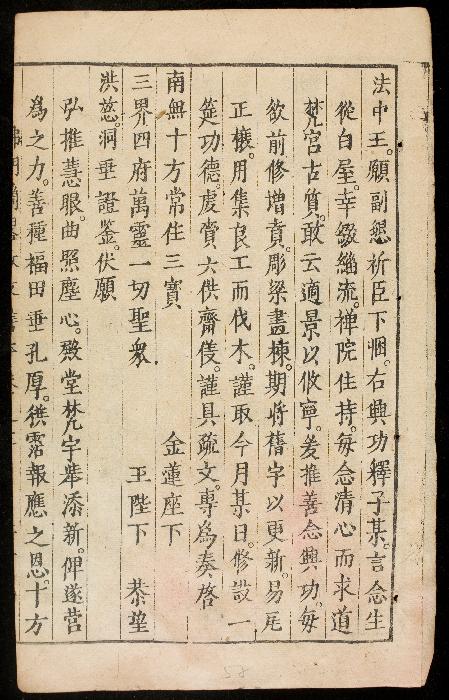 法中王。願副懇祈臣下悃。右興功釋子某。言念生
從白屋。幸綴緇流。禪院住持。每念清心而求道
梵宮古質。敢云適景以攸寧。爰推善念興功。每
欲前修增賁。彫梁畫棟。期將舊字以更新。易瓦
正榱。用集良工而伐木。謹取今月某日。修設一
筵功德。虔賫六供齋儀。謹具疏文。專為奏啓
南無十方常住三寶 金蓮座下
三界四府萬靈一切聖眾 王陛下 恭望
洪慈。洞垂證鉴。伏願
弘推慧眼。曲照塵心。殿堂梵宇舉添新。俾遂营
為之力。善種福田垂孔厚。供霑報應之恩。十方
58